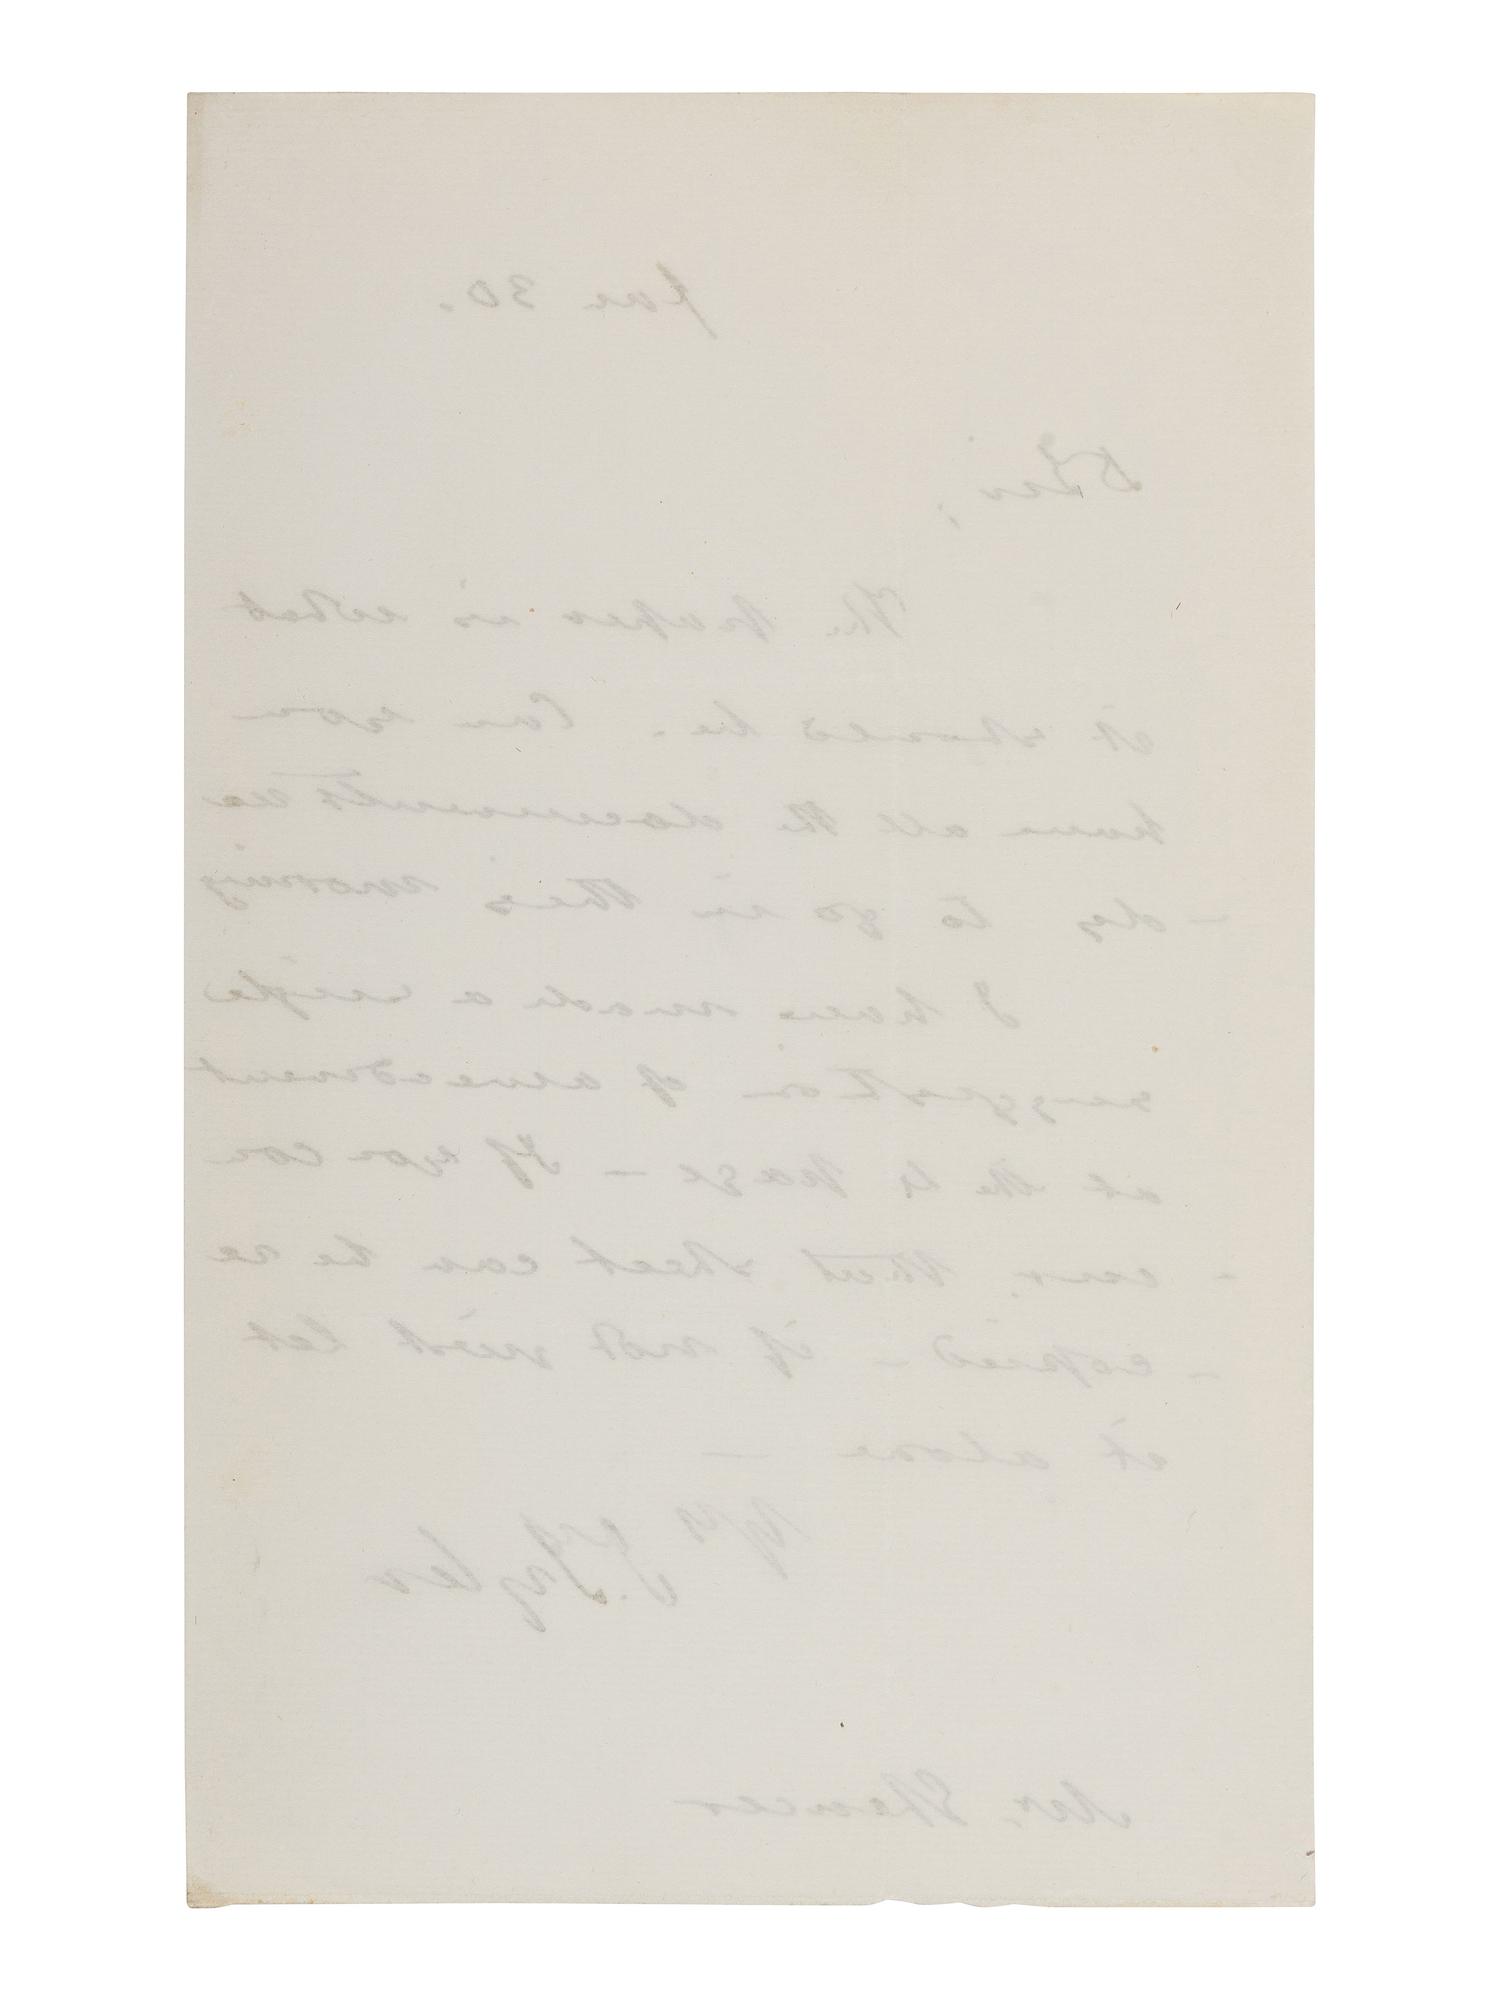 Jan 30.
D Sir,
The paper is what
it should be. Can you
have all the documents rea
-dy to go in this morning
I have made a single
suggestion of amendment
at the 4 page - If you con
-cur, that sheet can be re
-copied - if not just let
it alone -
Yrs
J. Tyler
Mr. Spencer